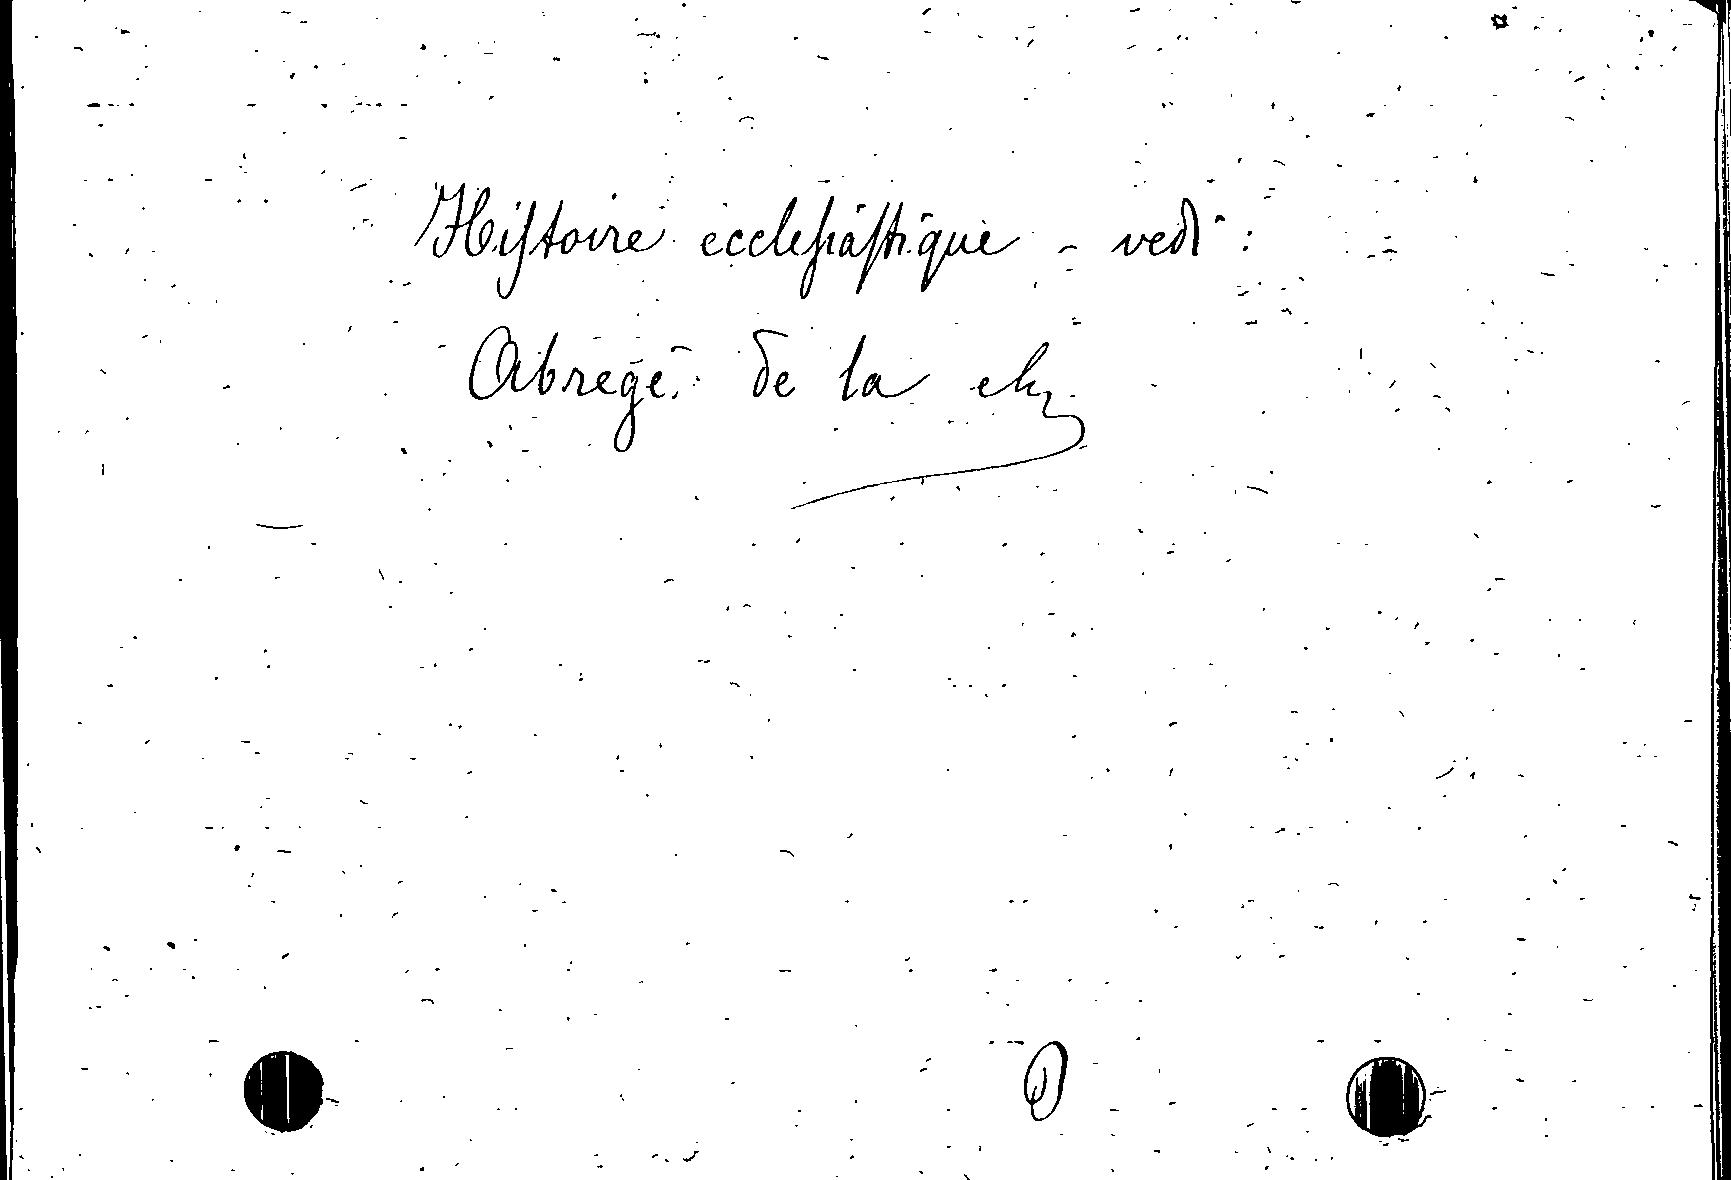 Histoire ecclesiastique - vedi:
Abregé de la